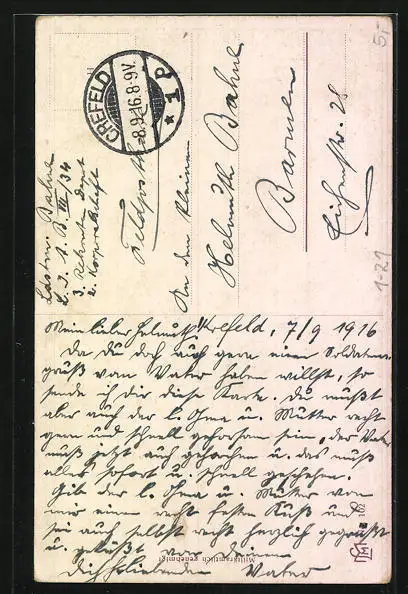 CREFELD
-8.9.16.8-9V.
* 1 d
5,-
Feldpost
An den Kleinen
Helmuth Bahne
Barmen
Eichenstr. 28
1-21
Landstm. Bahne
L. I. E. B. VII/34
3. Rekruten Depot
2. Korporalschaft
Mein lieber Helmuth! Krefeld, 7/9 1916
Da du doch auch gern einen Soldaten-
gruß vom Vater haben willst, so
sende ich dir diese Karte. Du mußt
aber auch der l. Oma u. Mutter recht
gern und schnell gehorsam sein, der Vater
muß jetzt auch gehorchen u. das muß
alles sofort u. schnell geschehen.
Gib der l. Oma u. Mutter von
mir einen recht festen Kuß und
sei auch selbst recht herzlich gegrüßt
u. geküßt von deinem
dichliebenden Vater
Militäramtlich genehmigt
102